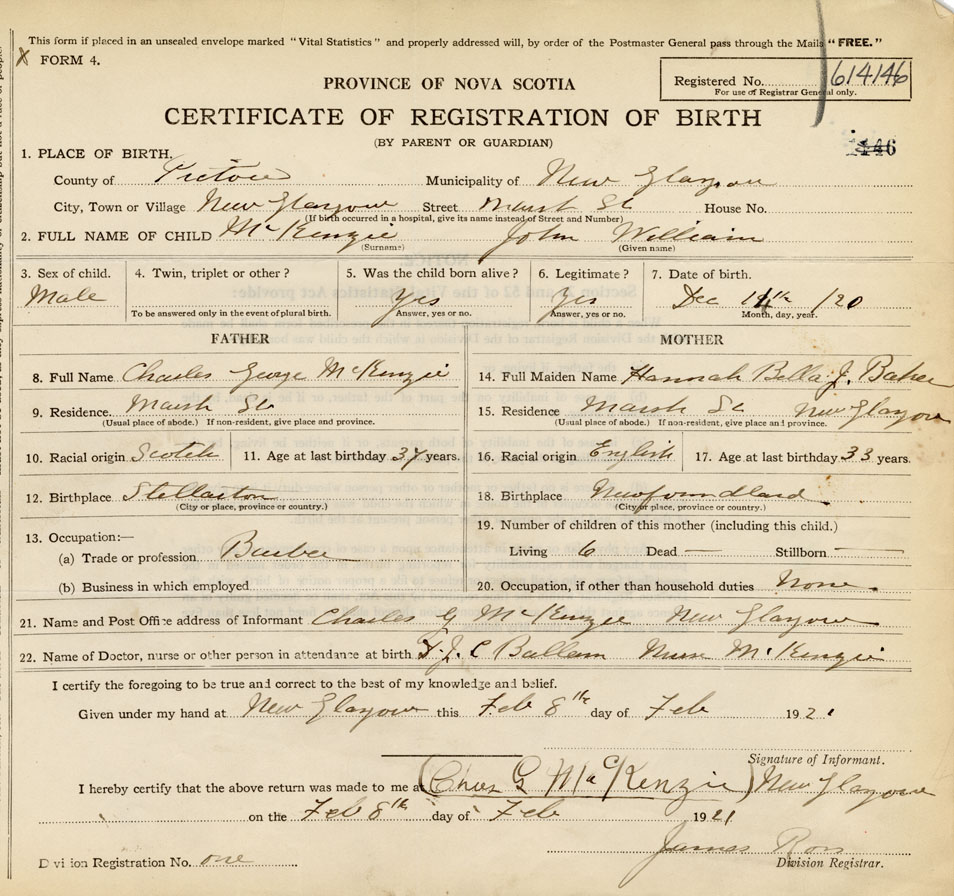 This form if placed in an unsealed envelope marked "Vital Statistics" and properly addressed will, by order of the Postmaster General pass through the Mails "FREE."
X FORM 4.
Registered No. 614146
For use of Registrar General only.
PROVINCE OF NOVA SCOTIA
CERTIFICATE OF REGISTRATION OF BIRTH
(BY PARENT OR GUARDIAN)
1. PLACE OF BIRTH.
County of Pictou Municipality of New Glasgow
City, Town or Village New Glasgow Street Marsh St House No.
(If birth occurred in a hospital, give its name instead of Street and Number)
2. FULL NAME OF CHILD McKenzie John William
(Surname) (Given name)
3. Sex of child. 4. Twin, triplet or other? 5. Was the child born alive? 6. Legitimate? 7. Date of birth.
Male Yes Yes Dec /20
To be answered only in the event of plural birth. Answer, yes or no. Answer, yes or no. Month, day, year.
FATHER MOTHER
8. Full Name Charles George McKenzie
14. Full Maiden Name Hannah Bella J. Baker
9. Residence. Marsh St
(Usual place of abode.) If non-resident, give place and province.
15. Residence Marsh St New Glasgow
(Usual place of abode.) If non-resident, give place and province.
10. Racial origin Scotch 11. Age at last birthday years.
16. Racial origin English 17. Age at last birthday 33 years.
12. Birthplace Stellarton
(City or place, province or country.)
18. Birthplace Newfoundland
(City or place, province or country.)
13. Occupation:—
(a) Trade or profession Barber
(b) Business in which employed
19. Number of children of this mother (including this child.)
Living 6 Dead — Stillborn —
20. Occupation, if other than household duties None
21. Name and Post Office address of Informant Charles G McKenzie New Glasgow
22. Name of Doctor, nurse or other person in attendance at birth Ballem Nurse McKenzie
I certify the foregoing to be true and correct to the best of my knowledge and belief.
Given under my hand at New Glasgow this Feb 8th day of Feb 1921
Signature of Informant.
I hereby certify that the above return was made to me at (Chas G MacKenzie) New Glasgow
on the Feb 8th day of Feb 1921
James Ross
Division Registration No. one Division Registrar.